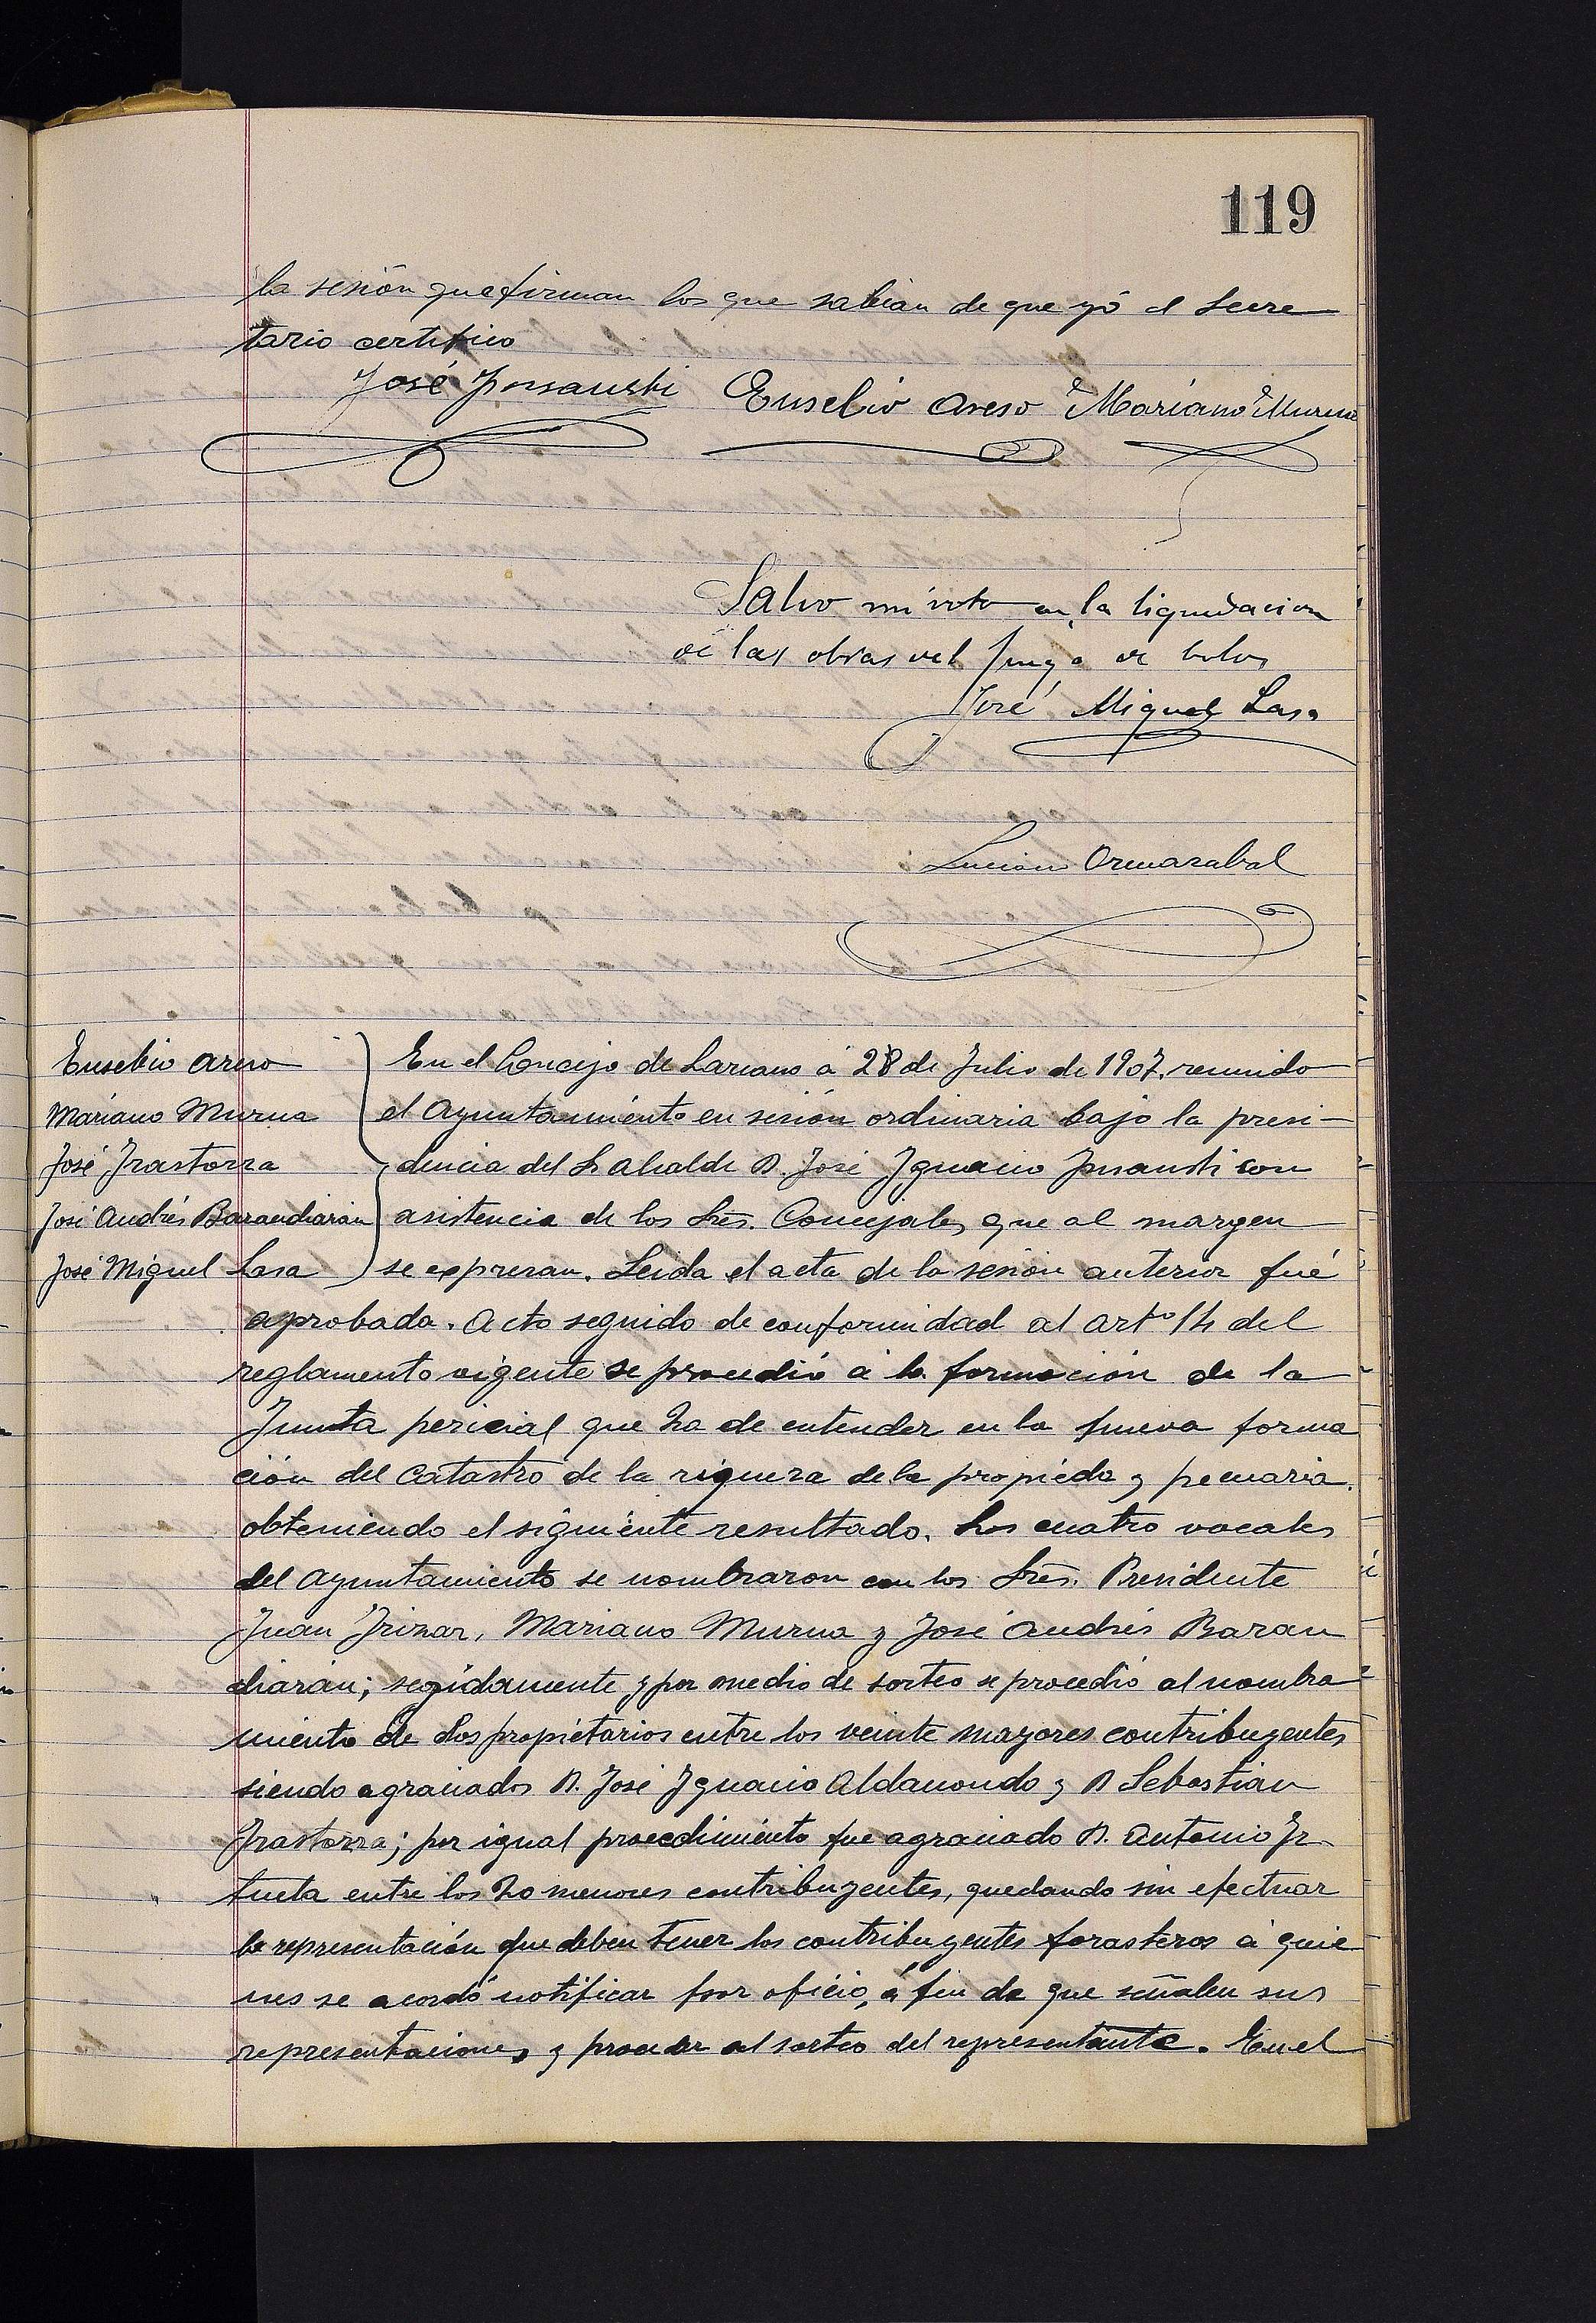 119
la sesión que firman los que sabian de que yó el Secre
tario certifico
José Insausti Eusebio Areso Mariano Murua
Salvo mi voto en la liquidacion
de las obras del juego de bolos
José Miguel Lasa
Luciano Ormazabal
Eusebio Areso
Mariano Murua
José Irastorza
José Andrés Barandiarán
José Miguel Lasa
En el Concejo de Lazcano á 28 de Julio de 1907, reunido
el Ayuntamiento en sesión ordinaria bajo la presi-
dencia del Sr Alcalde D. José Ignacio Insausti con
asistencia de los Sres. Concejales que al margen
se expresan. Leida el acta de la sesión anterior fué
aprobada. Acto seguido de conformidad al artº 14 del
reglamento vigente se procedió á la formación de la
Junta pericial que ha de entender en la nueva forma
ción del Catastro de la riqueza de la propieda y pecuaria.
obteniendo el siguiente resultado. Los cuatro vocales
del Ayuntamiento se nombraron con los Sres. Presidente
Juan Irizar, Mariano Murua y José Andrés Baran
diarán; segidamente y por medio de sorteo se procedió al nombra
miento de dos propietarios entre los veinte mayores contribuyentes
siendo agraciados D. José Ignacio Aldanondo y D Sebastian
Irastorza; por igual procedimiento fue agraciado D. Antonio Iz
tueta entre los 20 menores contribuyentes, quedando sin efectuar
la representación que deben tener los contribuyentes forasteros á quie
nes se acordó notificar por oficio, á fin de que señalen sus
representaciones y proceder al sorteo del representante. En el